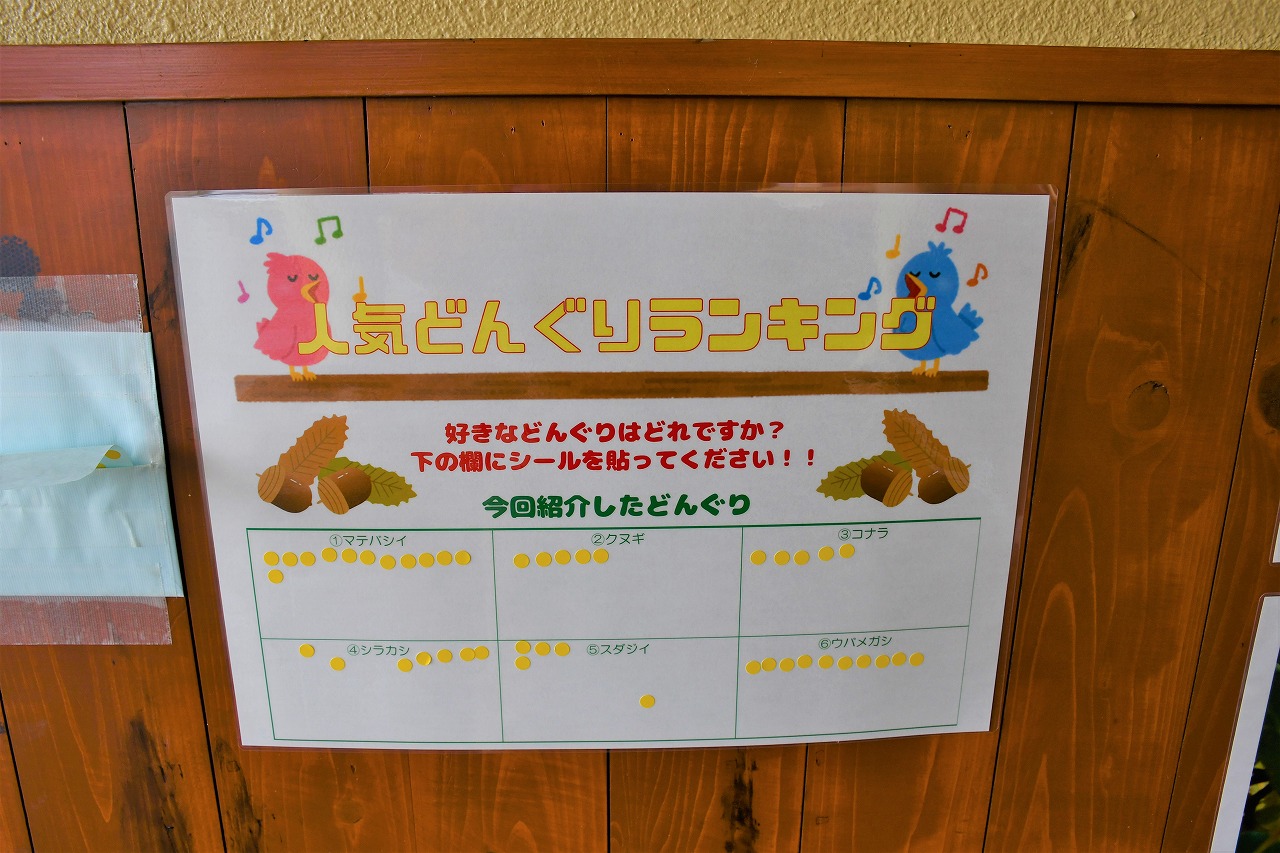 人気どんぐりランキング
好きなどんぐりはどれですか？
下の欄にシールを貼ってください！！
今回紹介したどんぐり
①マテバシイ
②クヌギ
③コナラ
④シラカシ
⑤スダジイ
⑥ウバメガシ